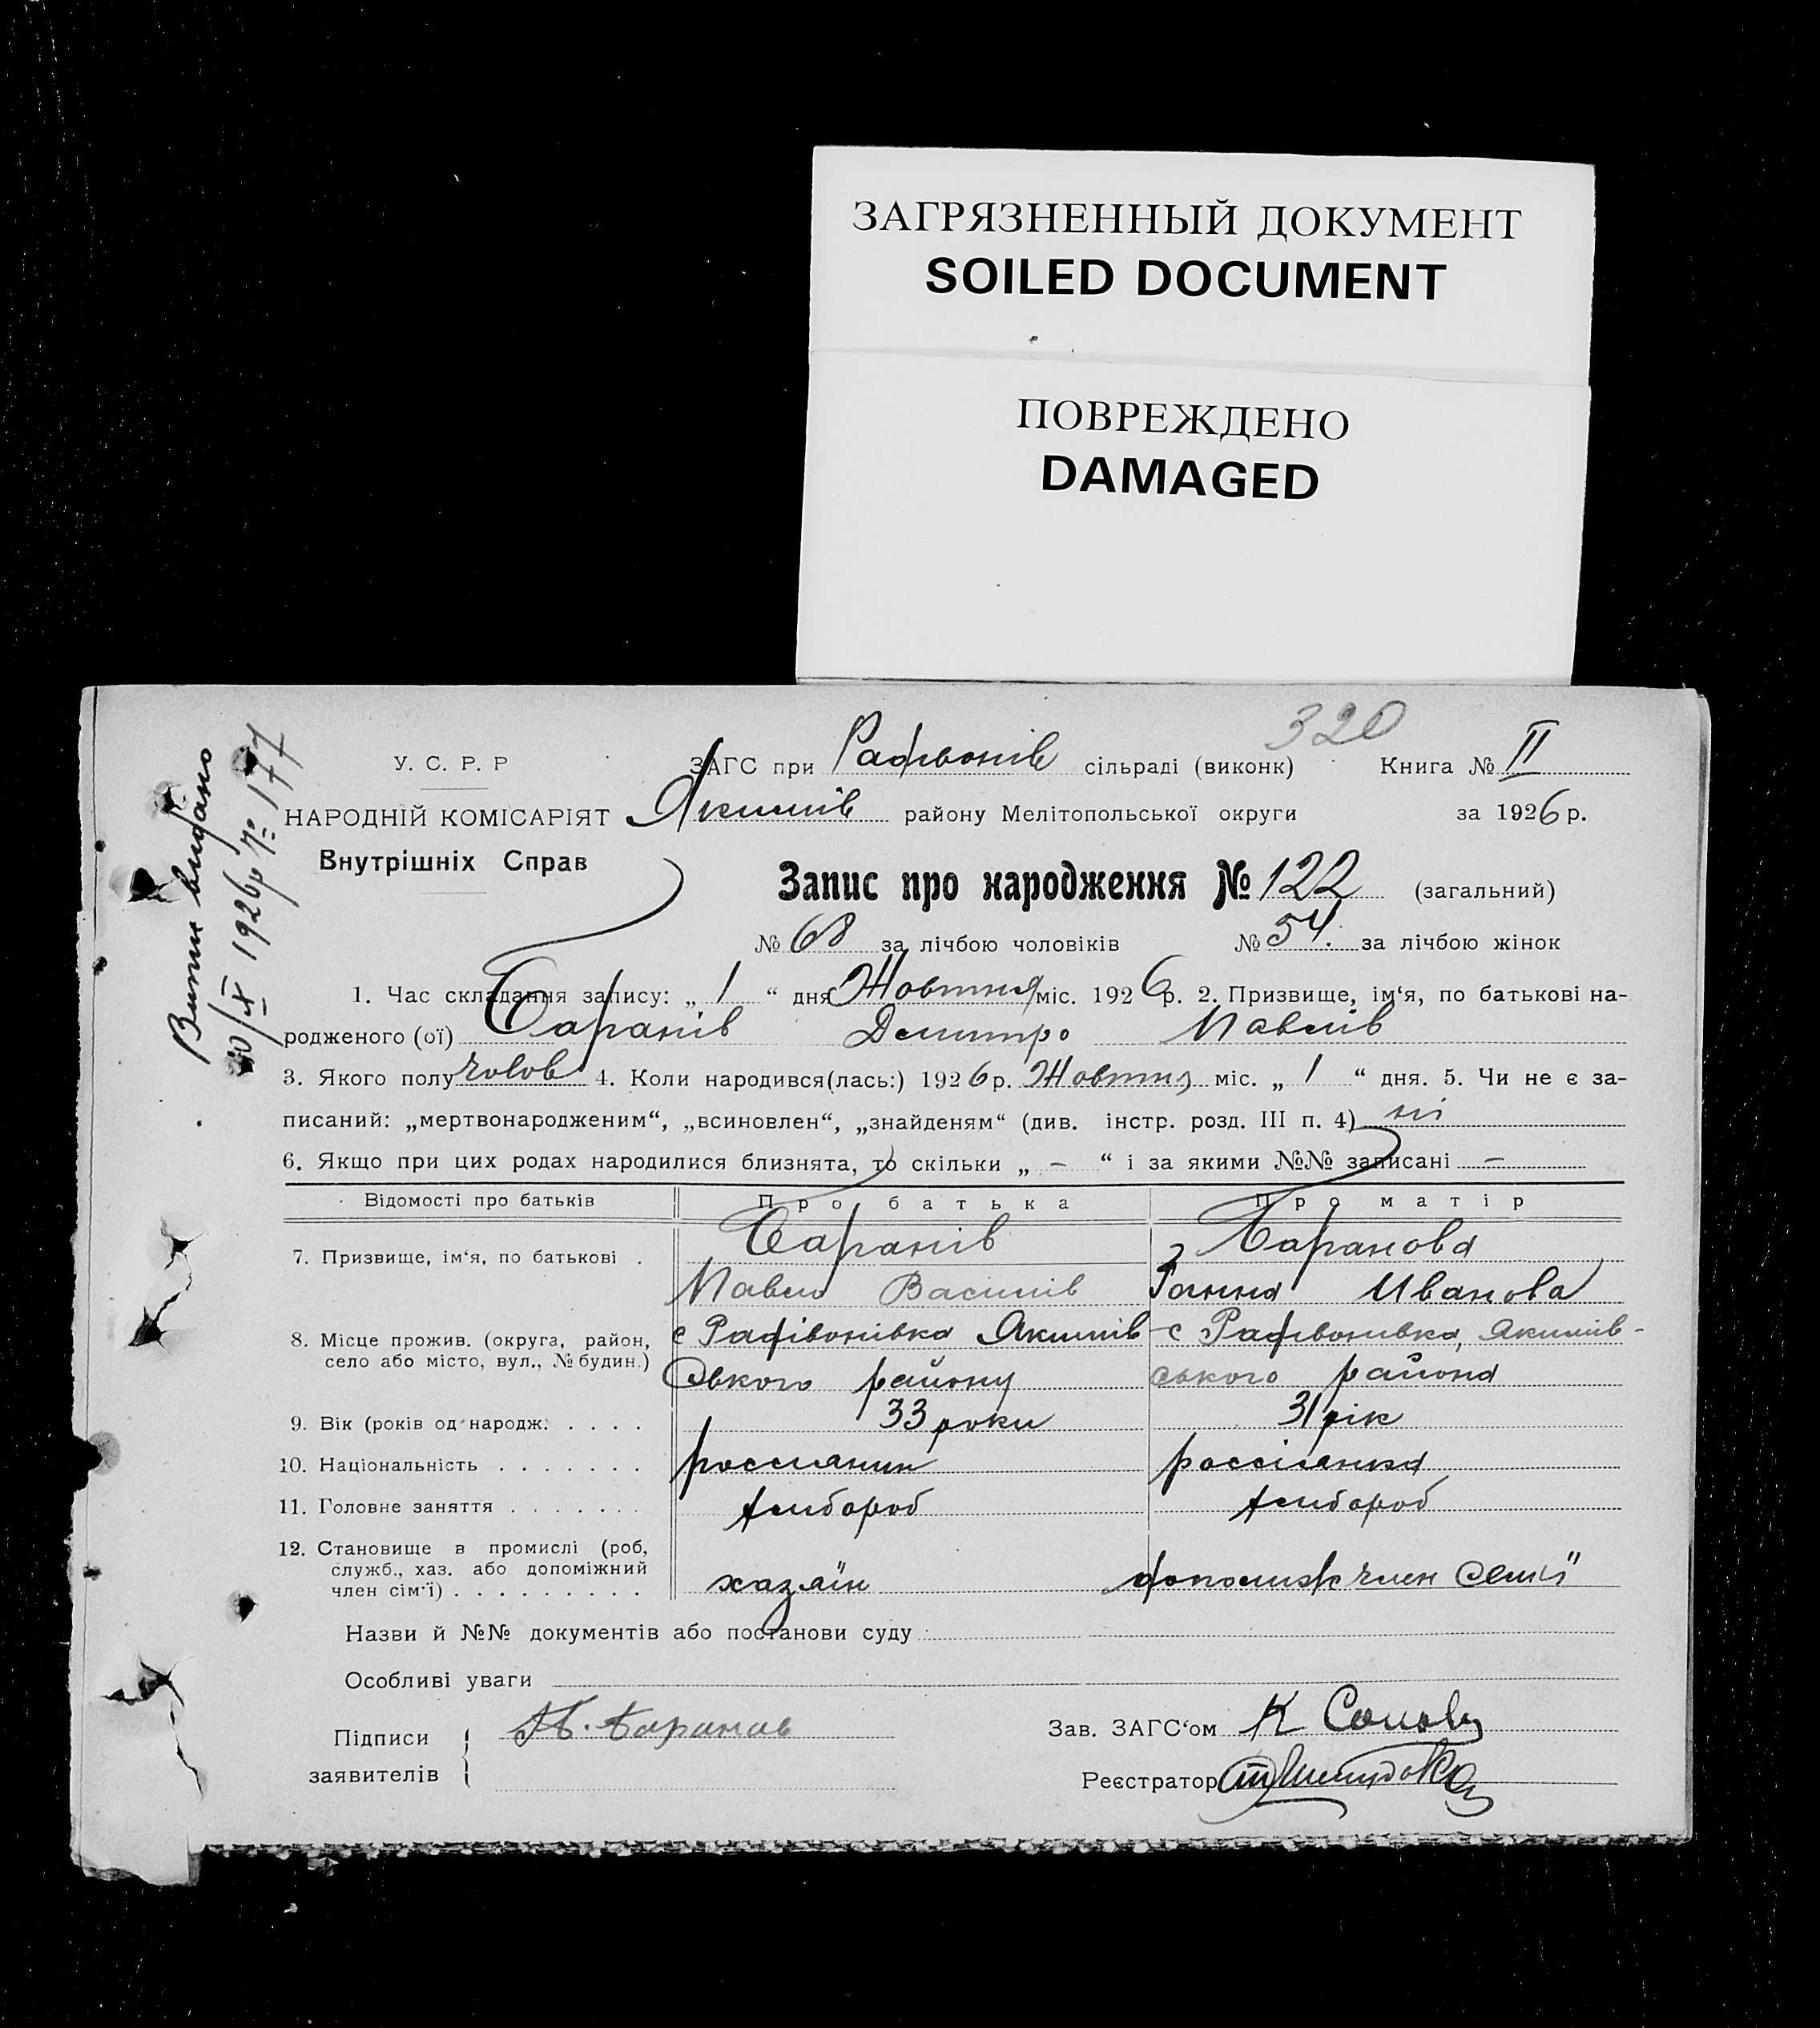 ЗАГРЯЗНЕННЫЙ ДОКУМЕНТ
SOILED DOCUMENT
ПОВРЕЖДЕНО
DAMAGED
320
У. С. Р. Р
ЗАГС при Рафвонів сільраді (виконк) Книга № II
НАРОДНІЙ КОМІСАРІЯТ Якимів району Мелітопольської округи за 1926 р.
Внутрішніх Справ
Запис про народження № 122 (загальний)
№ 68 за лічбою чоловіків № 54. за лічбою жінок
Витяг видано
1926р № 177
1. Час складання запису: „ 1 “ дня Жовтня міс. 1926 р. 2. Призвище, ім‘я, по батькові на-
родженого (ої) Баранів Дмитро Павлів
3. Якого полу чолов 4. Коли народився(лась:) 1926 р. Жовтня міс. „ 1 “ дня. 5. Чи не є за-
писаний: „мертвонародженим“, „всиновлен“, „знайденям“ (див. інстр. розд. III п. 4) ні
6. Якщо при цих родах народилися близнята, то скільки „ – “ і за якими №№ записані –
Відомості про батьків Про батька Про матір
7. Призвище, ім‘я, по батькові . Баранів Баранова
Павло Василів Ганна Иванова
8. Місце прожив. (округа, район, с Рафівонівка Якимів с Рафвонивка, Якимів-
село або місто, вул., № будин.) ського району ського района
9. Вік (років од народж. . . . . 33 роки 31 рік
10. Національність . . . . . . . россиянин россіянка
11. Головне заняття . . . . . . . хлибороб хлибороб
12. Становище в промислі (роб,
служб., хаз. або допоміжний
член сім‘ї) . . . . . . . . . хазяїн допомиж член семиї
Назви й №№ документів або постанови суду
Особливі уваги
Підписи П. Баранов Зав. ЗАГС‘ом К
заявителів Реєстратор